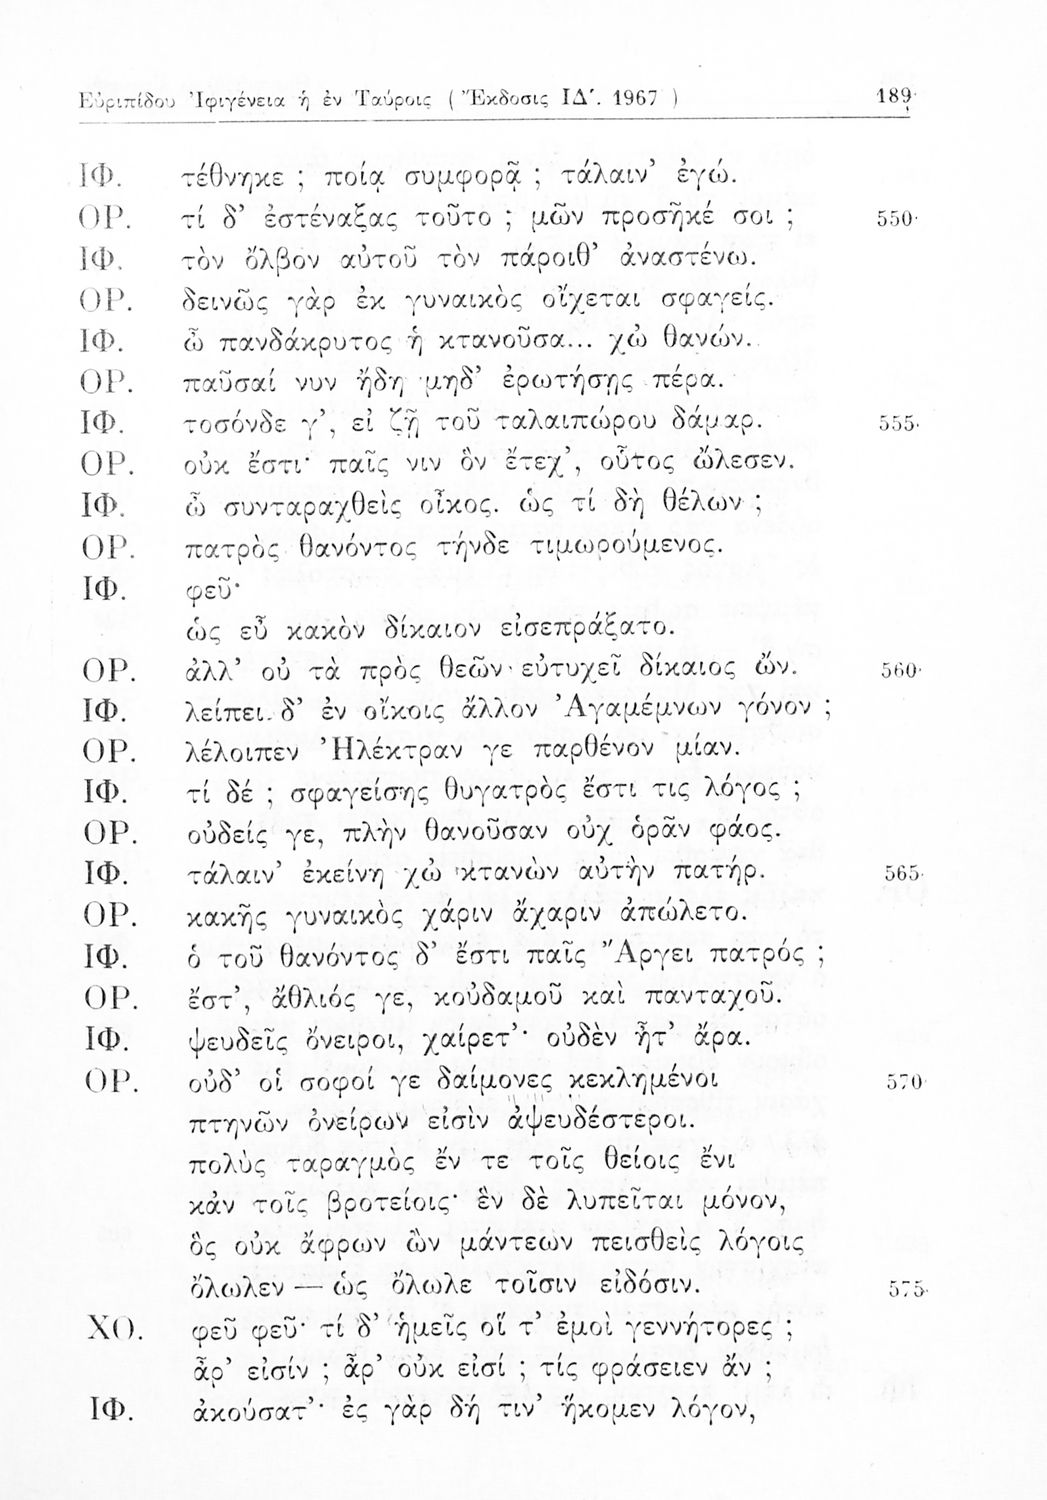 Εὐριπίδου Ἰφιγένεια ἡ ἐν Ταύροις ( Ἔκδοσις ΙΔ΄. 1967 ) 189
ΙΦ. τέθνηκε ; ποίᾳ συμφορᾷ ; τάλαιν’ ἐγώ.
ΟΡ. τί δ’ ἐστέναξας τοῦτο ; μῶν προσῆκέ σοι ; 550
ΙΦ. τὸν ὄλβον αὐτοῦ τὸν πάροιθ’ ἀναστένω.
ΟΡ. δεινῶς γὰρ ἐκ γυναικὸς οἴχεται σφαγείς.
ΙΦ. ὦ πανδάκρυτος ἡ κτανοῦσα... χὠ θανών.
ΟΡ. παῦσαί νυν ἤδη μηδ’ ἐρωτήσῃς πέρα.
ΙΦ. τοσόνδε γ’, εἰ ζῇ τοῦ ταλαιπώρου δάμαρ. 555
ΟΡ. οὐκ ἔστι· παῖς νιν ὃν ἔτεχ’, οὗτος ὤλεσεν.
ΙΦ. ὦ συνταραχθεὶς οἶκος. ὡς τί δὴ θέλων ;
ΟΡ. πατρὸς θανόντος τήνδε τιμωρούμενος.
ΙΦ. φεῦ·
ὡς εὖ κακὸν δίκαιον εἰσεπράξατο.
ΟΡ. ἀλλ’ οὐ τὰ πρὸς θεῶν εὐτυχεῖ δίκαιος ὤν. 560
ΙΦ. λείπει δ’ ἐν οἴκοις ἄλλον Ἀγαμέμνων γόνον ;
ΟΡ. λέλοιπεν Ἠλέκτραν γε παρθένον μίαν.
ΙΦ. τί δέ ; σφαγείσης θυγατρὸς ἔστι τις λόγος ;
ΟΡ. οὐδείς γε, πλὴν θανοῦσαν οὐχ ὁρᾶν φάος.
ΙΦ. τάλαιν’ ἐκείνη χὠ κτανὼν αὐτὴν πατήρ. 565
ΟΡ. κακῆς γυναικὸς χάριν ἄχαριν ἀπώλετο.
ΙΦ. ὁ τοῦ θανόντος δ’ ἔστι παῖς Ἄργει πατρός ;
ΟΡ. ἔστ’, ἄθλιός γε, κοὐδαμοῦ καὶ πανταχοῦ.
ΙΦ. ψευδεῖς ὄνειροι, χαίρετ’· οὐδὲν ἦτ’ ἄρα.
ΟΡ. οὐδ’ οἱ σοφοί γε δαίμονες κεκλημένοι 570
πτηνῶν ὀνείρων εἰσὶν ἀψευδέστεροι.
πολὺς ταραγμὸς ἔν τε τοῖς θείοις ἔνι
κἀν τοῖς βροτείοις· ἓν δὲ λυπεῖται μόνον,
ὃς οὐκ ἄφρων ὢν μάντεων πεισθεὶς λόγοις
ὄλωλεν — ὡς ὄλωλε τοῖσιν εἰδόσιν. 575
ΧΟ. φεῦ φεῦ· τί δ’ ἡμεῖς οἵ τ’ ἐμοὶ γεννήτορες ;
ἆρ’ εἰσίν ; ἆρ’ οὐκ εἰσί ; τίς φράσειεν ἄν ;
ΙΦ. ἀκούσατ’· ἐς γὰρ δή τιν’ ἥκομεν λόγον,